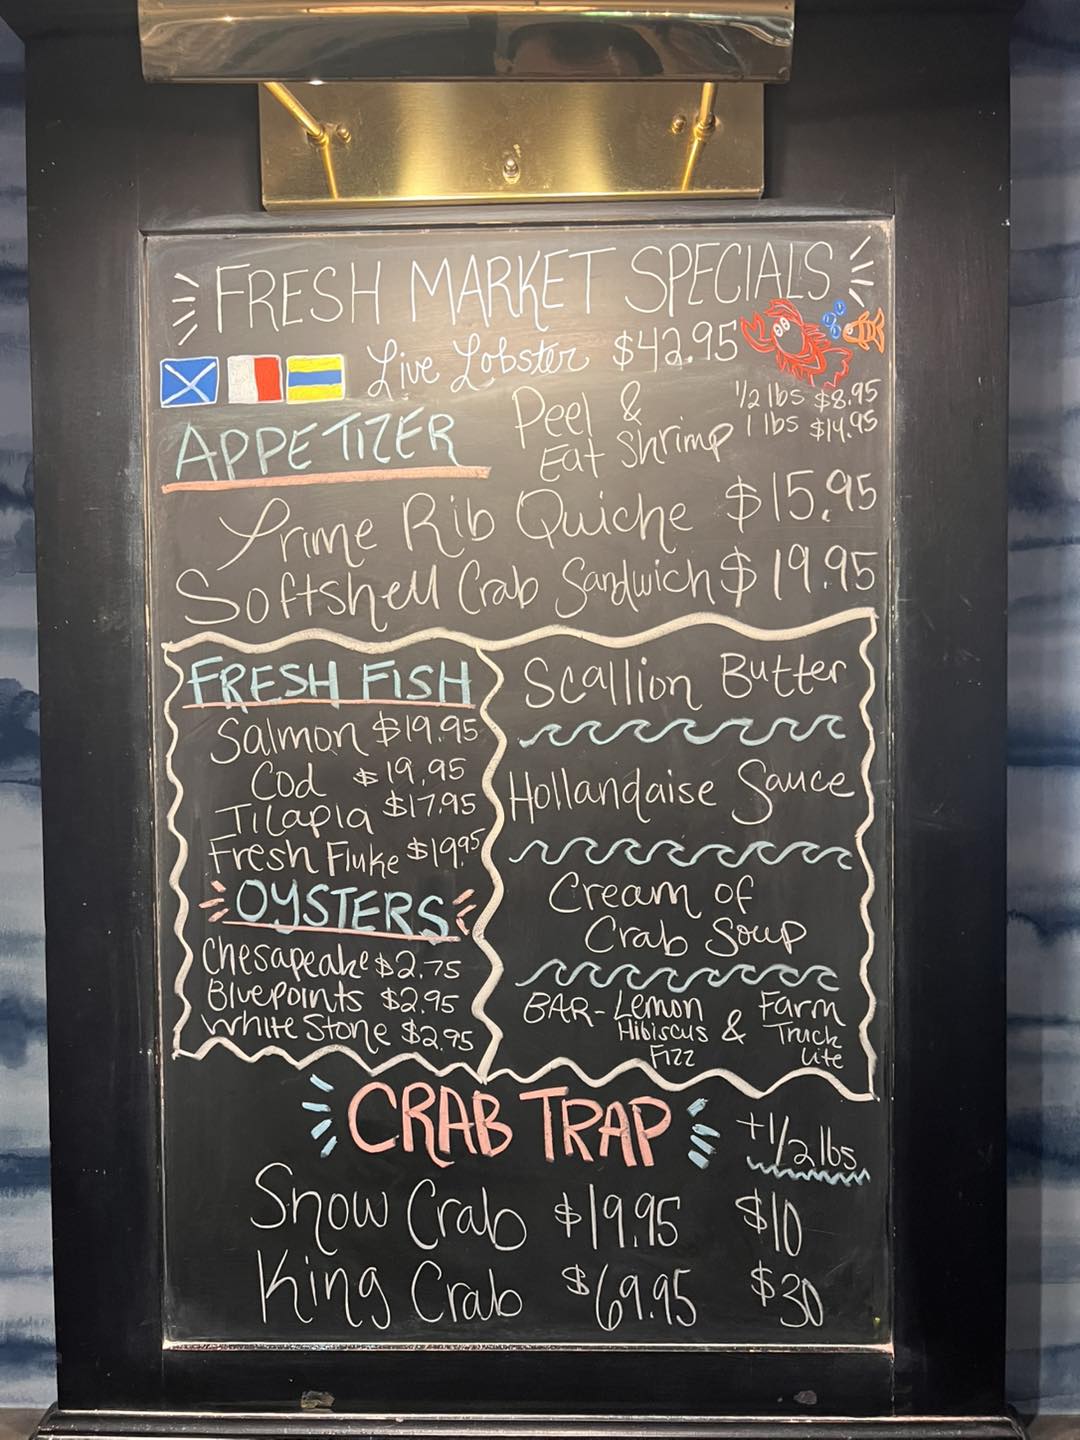 FRESH MARKET SPECIALS
Live Lobster $42.95
APPETIZER
Peel & Eat Shrimp
1/2 lbs $8.95
1 lbs $14.95
Prime Rib Quiche $15.95
Softshell Crab Sandwich $19.95
FRESH FISH
Salmon $19.95
Cod $19.95
Tilapia $17.95
Fresh Fluke $19.95
OYSTERS
Chesapeake $2.75
Bluepoints $2.95
White Stone $2.95
Scallion Butter
Hollandaise Sauce
Cream of
Crab Soup
BAR- Lemon Hibiscus Fizz & Farm Truck Lite
CRAB TRAP
+1/2 lbs
Snow Crab $19.95 $10
King Crab $69.95 $30